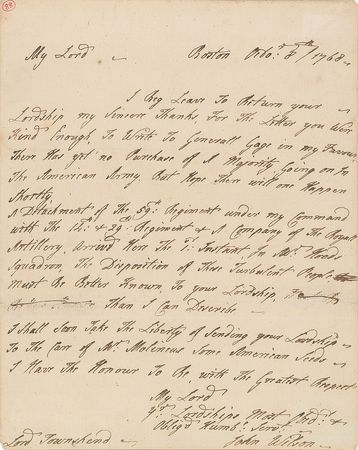 My Lord Boston Octo.r 8th / 1768
I Beg Leave To Return your
Lordship my Sincere Thanks, For The Letter you Were
Kind Enough, To Write To Generall Gage in my Favour
There Has yet no Purchase of A Majority Going on In
The American Army, But Hope There will one Happen
Shortly,
A Detachment of The 59.th Regiment under my Command
with The 14.th & 29.th Regiment & A Company of The Royal
Artillery, arriv'd Here The 1.st Instant, In Mr. Hoods
Squadron, The Disposition of These Turbulent People
Must Be Better Known To your Lordship,
Than I Can Describe
I Shall Soon Take The Liberty of Sending your Lordship
To The Care of Mr. Molineux Some American Seeds
I Have The Honour To Be, with The Greatest Respect
My Lord
Yr. Lordships Most Obdt. &
Oblig'd Humb.e Servt.
John Wilson
Lord Townshend